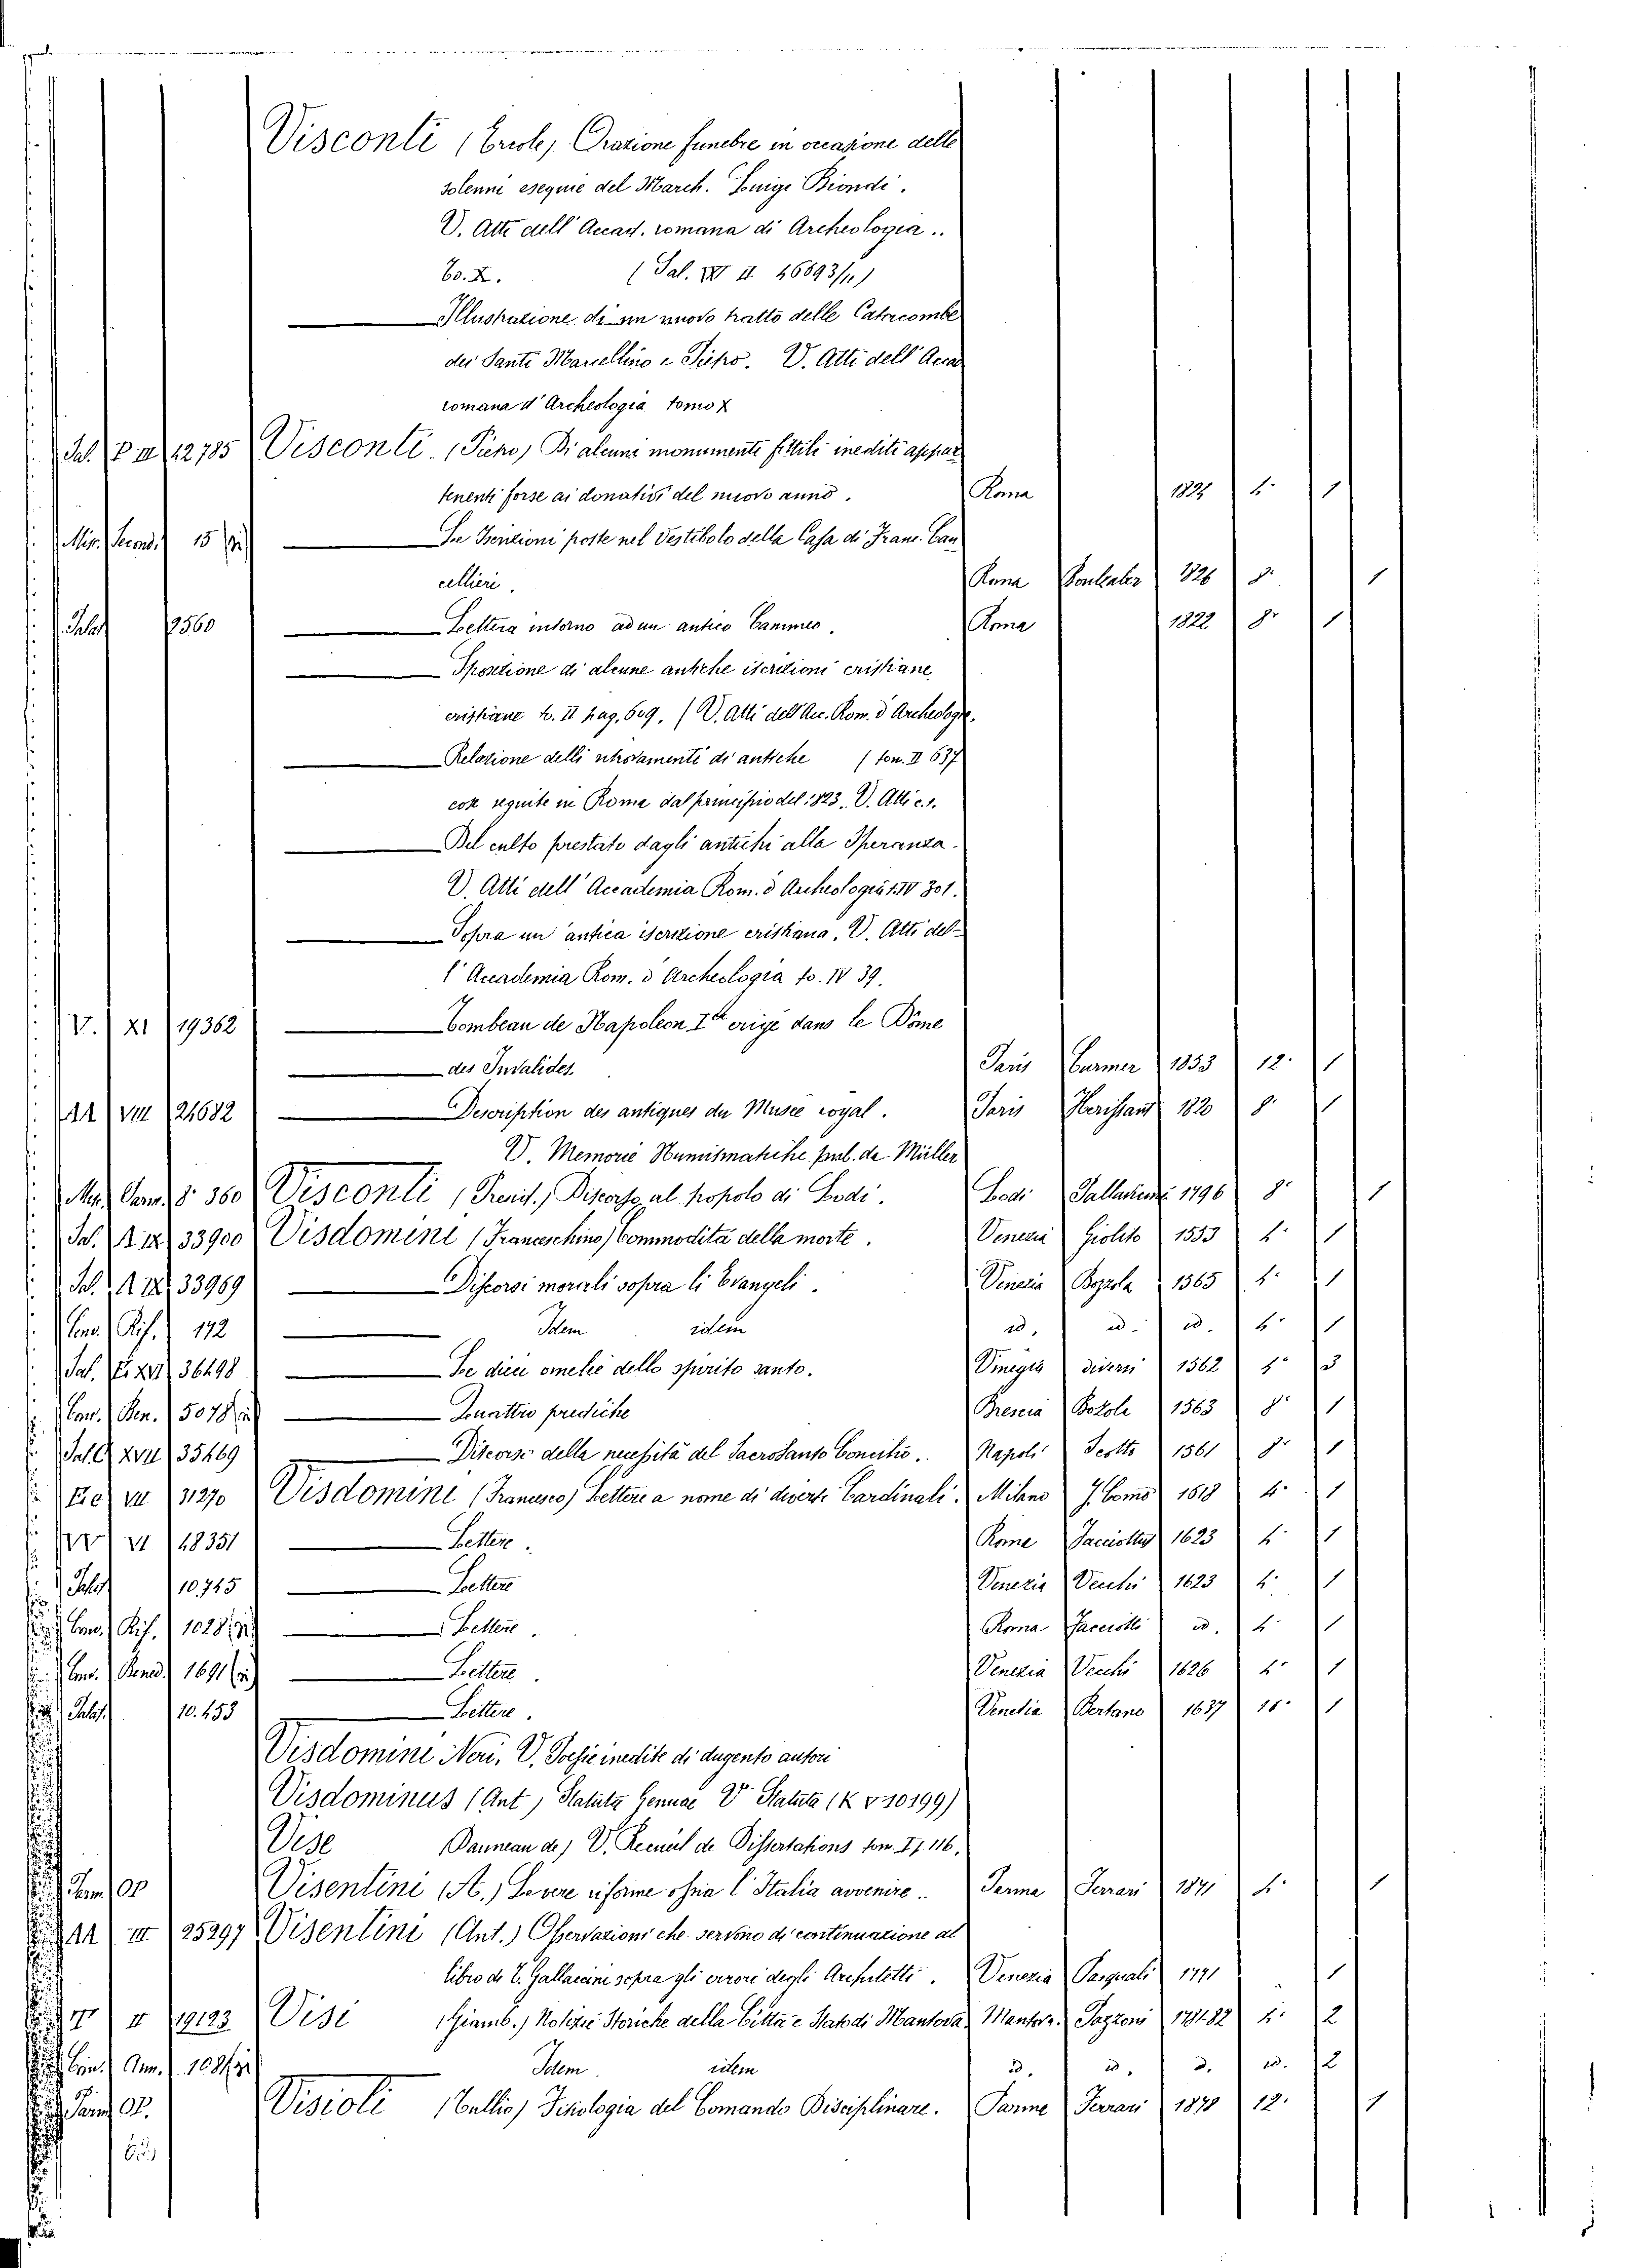 Visconti (Ercole) Orazione funebre in occasione delle
solenni esequie del March. Luigi Biondi.
V. Atti dell' Accad. romana di Archeologia..
to. X. (Sal. XVI II 46893/11)
Illustrazione di un nuovo tratto delle Catacombe
dei Santi Marcellino e Pietro. V. Atti dell' Acca
romana d' Archeologia tomo X
Sal. P III 12785 Visconti (Pietro) Di alcuni monumenti fittili inediti appar
tenenti forse ai donativi del nuovo anno. Roma 1821 4° 1
Mis. Second. 15 Le Iscrizioni poste nel Vestibolo della Casa di Franc. Can
cellieri. Roma 1826 8° 1
Palat 12560 Lettera intorno ad un antico Cammeo. Roma 1822 8° 1
Sposizione di alcune antiche iscrizioni cristiane
cristiane to. II pag. 609. (V. Atti dell' Acc. Rom. d' Archeologia.
Relazione delli ritrovamenti di antiche (tom. II 637
cose seguite in Roma dal principio del 1823. V. Atti c. s.
Del culto prestato dagli antichi alla Speranza.
V. Atti dell' Accademia Rom. d' Archeologia t. IV 301.
Sopra un' antica iscrizione cristiana. V. Atti del-
l' Accademia Rom. d' Archeologia to. IV 39.
V. XI 19362 Tombeau de Napoleon Ier erigé dans le Dôme
des Invalides. Paris Curmer 1853 12° 1
AA VIII 21682 Description des antiques du Musée royal. Paris Herissant 1820 8° 1
V. Memorie Numismatiche pub. da Müller
360 Visconti (Prenit.) Discorso al popolo di Lodi. Lodi Pallavicini 1796 8° 1
Sal. A IX 33900 Visdomini (Franceschino) Commodità della morte. Venezia Giolito 1553 4° 1
Sal. A IX 33969 Discorsi morali sopra li Evangeli. Venezia Bozzola 1565 4° 1
Conv. Rif. 192 Idem idem id. id. id. 4° 1
Sal. E XVI 36498 Le dieci omelie dello spirito santo. Vinegia diversi 1562 4° 3
Conv. Ben. 5078 Quattro prediche Brescia Bozole 1563 8° 1
Sal. Q XVII 35469 Discorso della necessità del Sacrosanto Concilio.. Napoli Scotto 1561 8° 1
VII 31270 Visdomini (Francesco) Lettere a nome di diversi Cardinali. Milano Como 1618 4° 1
VI 48351 Lettere. Roma Facciotti 1623 4° 1
Palat 10.745 Lettere Venezia Vecchi 1623 4° 1
Conv. Rif. 1028 Lettere. Roma Facciotti id. 4° 1
Conv. Bened. 1691 Lettere. Venezia Vecchi 1626 4° 1
Palat. 10.453 Lettere. Venetia Bertano 1637 18° 1
Visdomini Neri. V. Poesie inedite di dugento autori
Visdominus (Ant) Statuta Genuae V. Statuta (K V 10199)
Vise Danneau de) V. Recueil de Dissertations tom. II 116.
OP Visentini (A.) Le vere riforme ossia l' Italia avvenire.. Parma Ferrari 1871 4° 1
AA III 25297 Visentini (Ant.) Osservazioni che servono di continuazione al
libro di T. Gallaccini sopra gli errori degli Architetti. Venezia Pasquali 1771 1
II 19123 Visi (Giamb.) Notizie Storiche della Città e Stato di Mantova. Mantova. Pazzoni 1781-82 4° 2
Ann. 108 Idem idem id. id. d. id. 2
OP. Visioli (Tullio) Fisiologia del Comando Disciplinare. Parma Ferrari 1878 12° 1